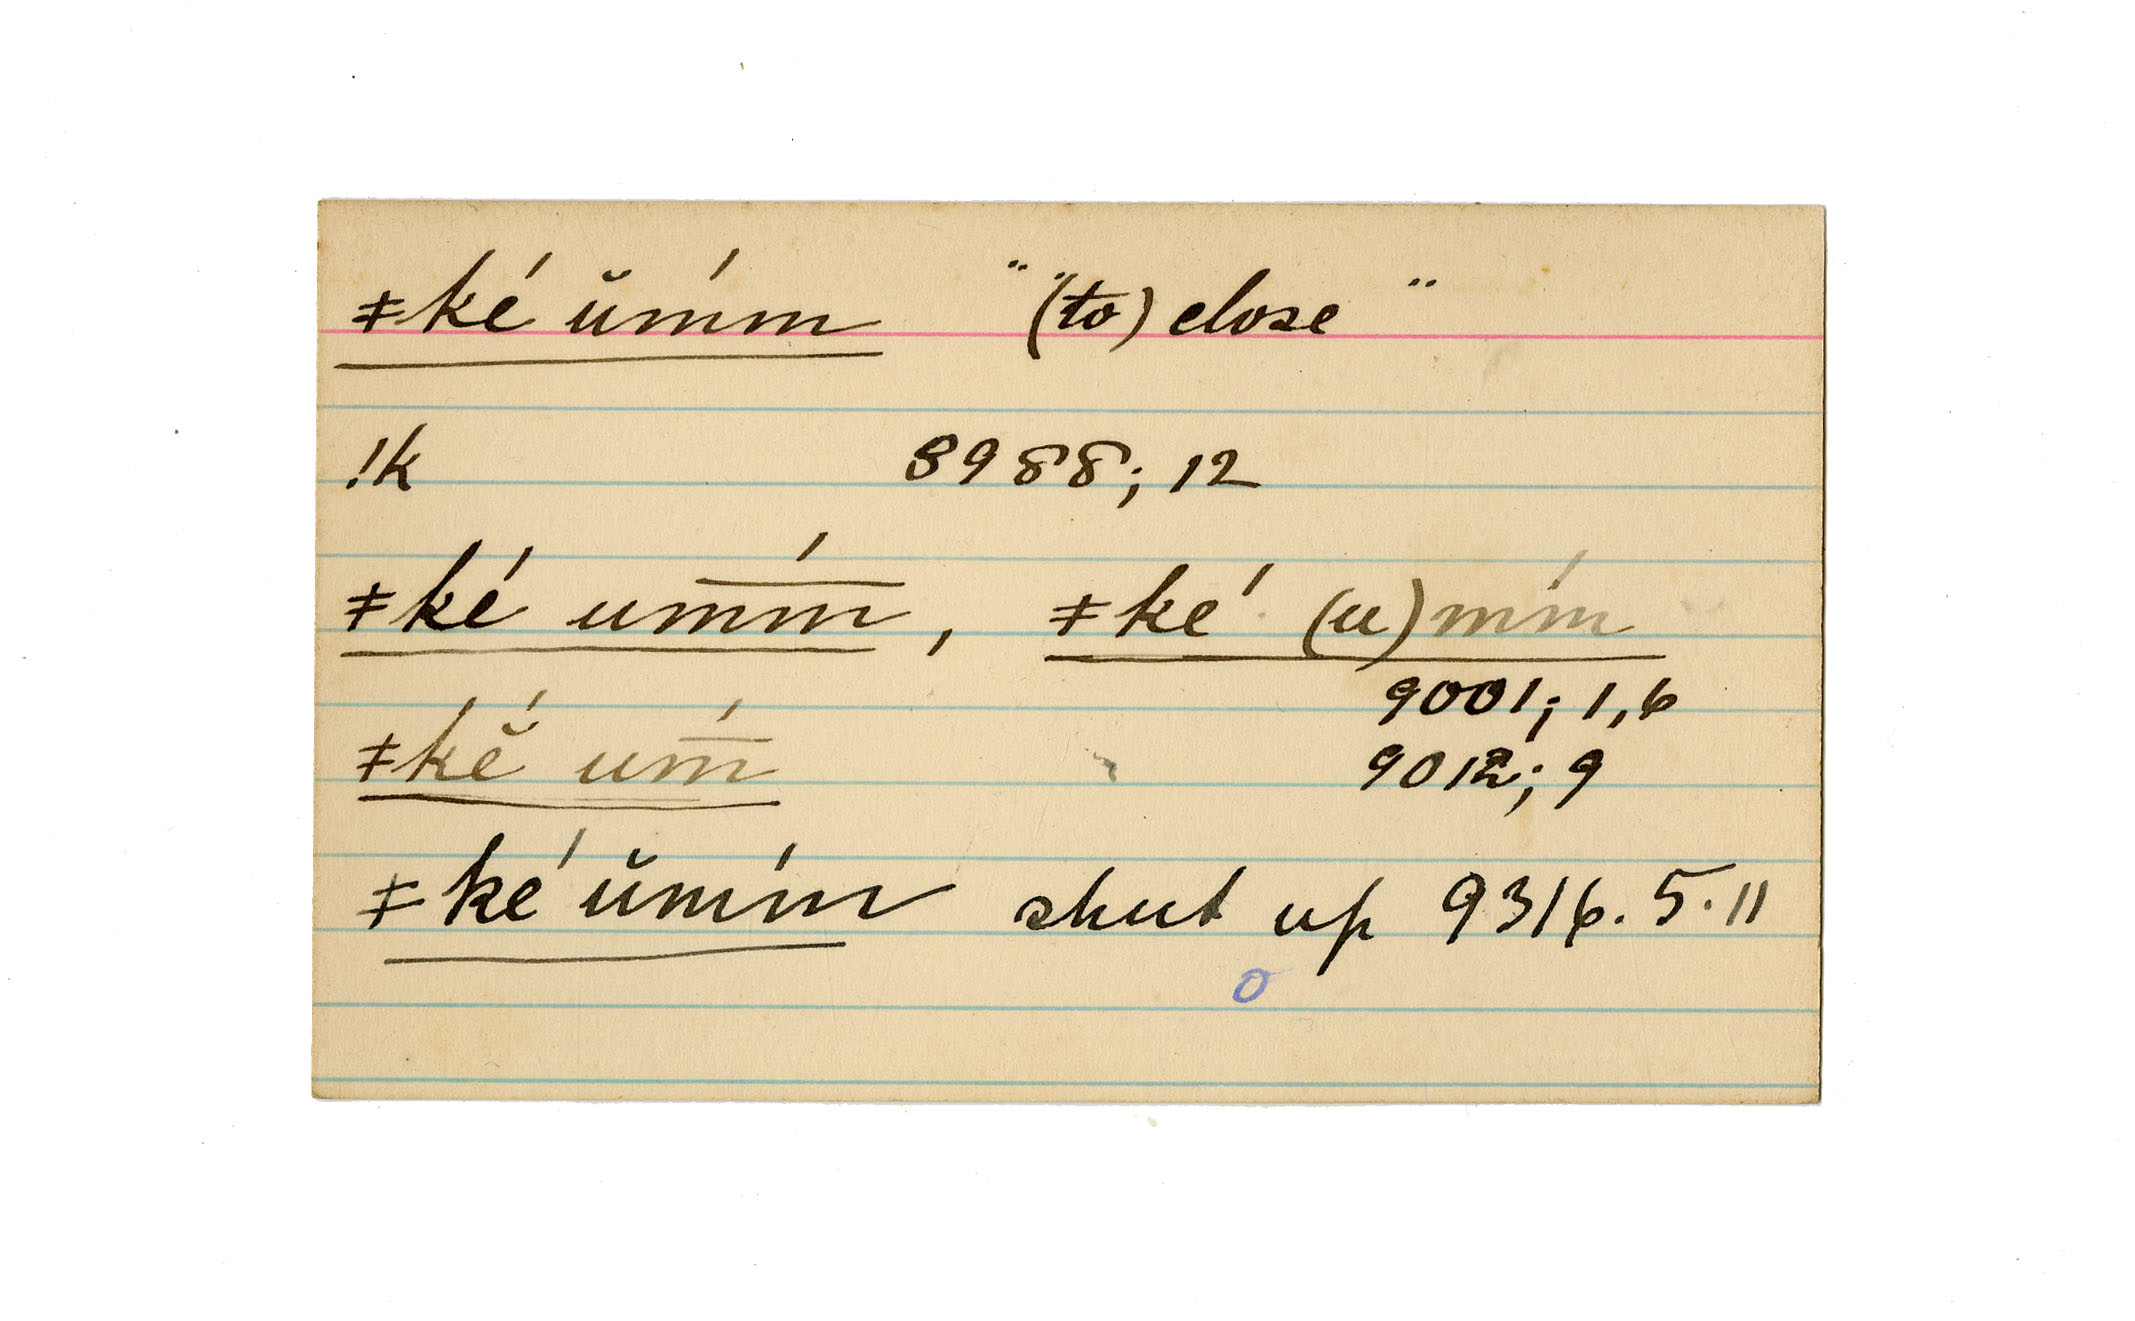 ǂké ŭmḿ "(to) close"
!k 8988; 12
ǂké um̅ḿ̅, ǂké (u)mḿ
9001; 1,6
ǂkĕ́ uḿ̅ 9012; 9
ǂké ŭmḿ shut up 9316. 5. 11
o